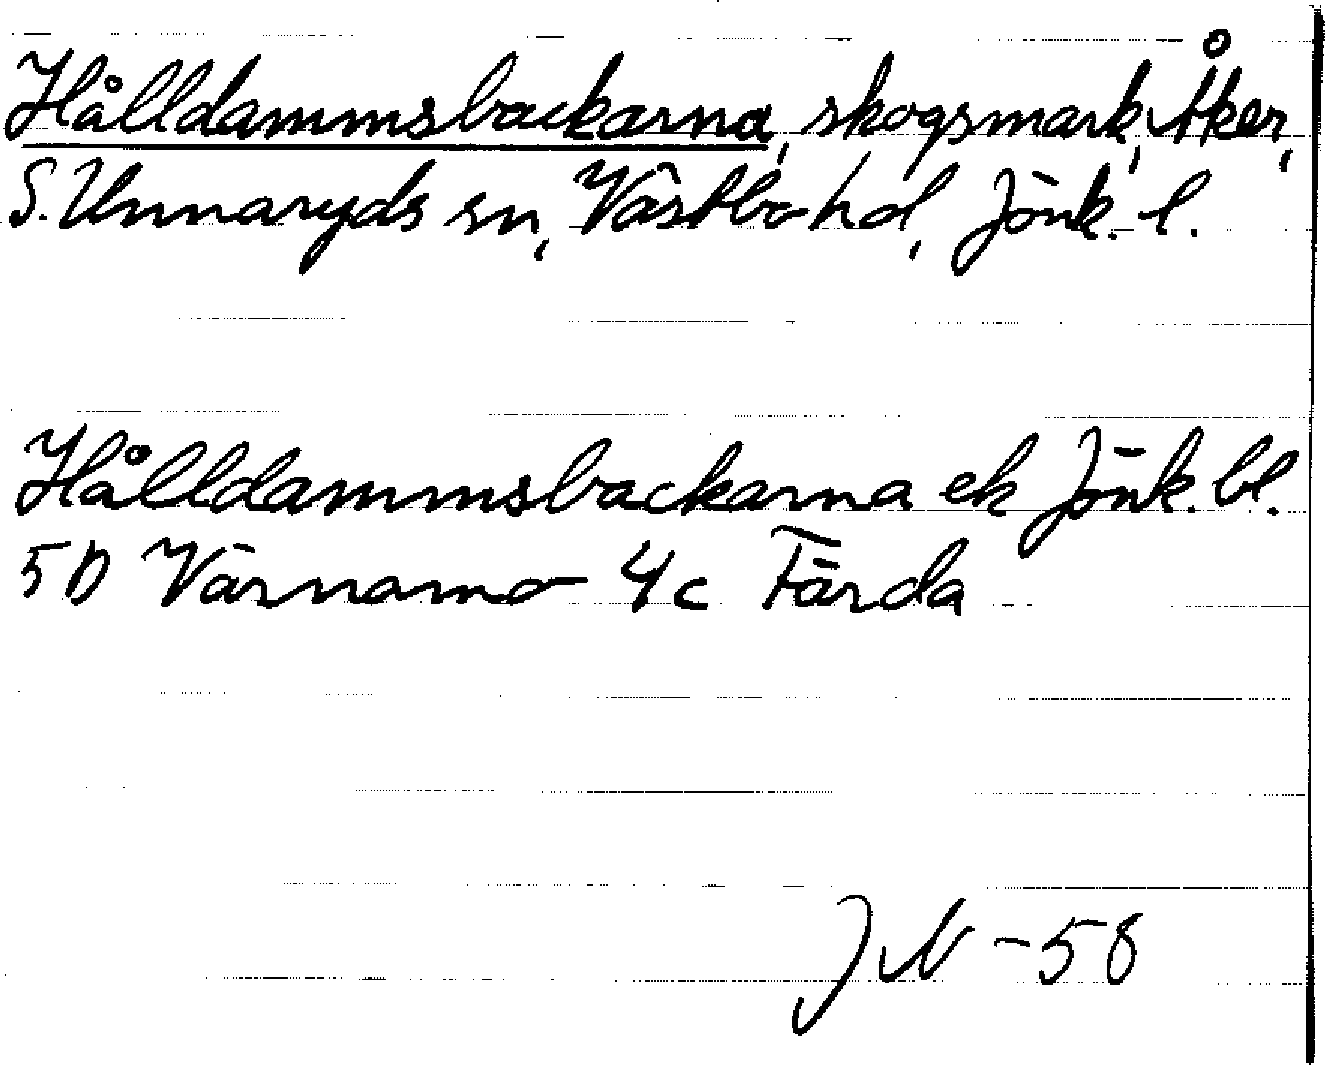 Hålldammsbackarna, skogsmark, Åker,
S. Unnaryds sn, Västbo hd, Jönk. l.
Hålldammsbackarna ek Jönk. bl.
5D Värnamo 4c Färda
JN -58